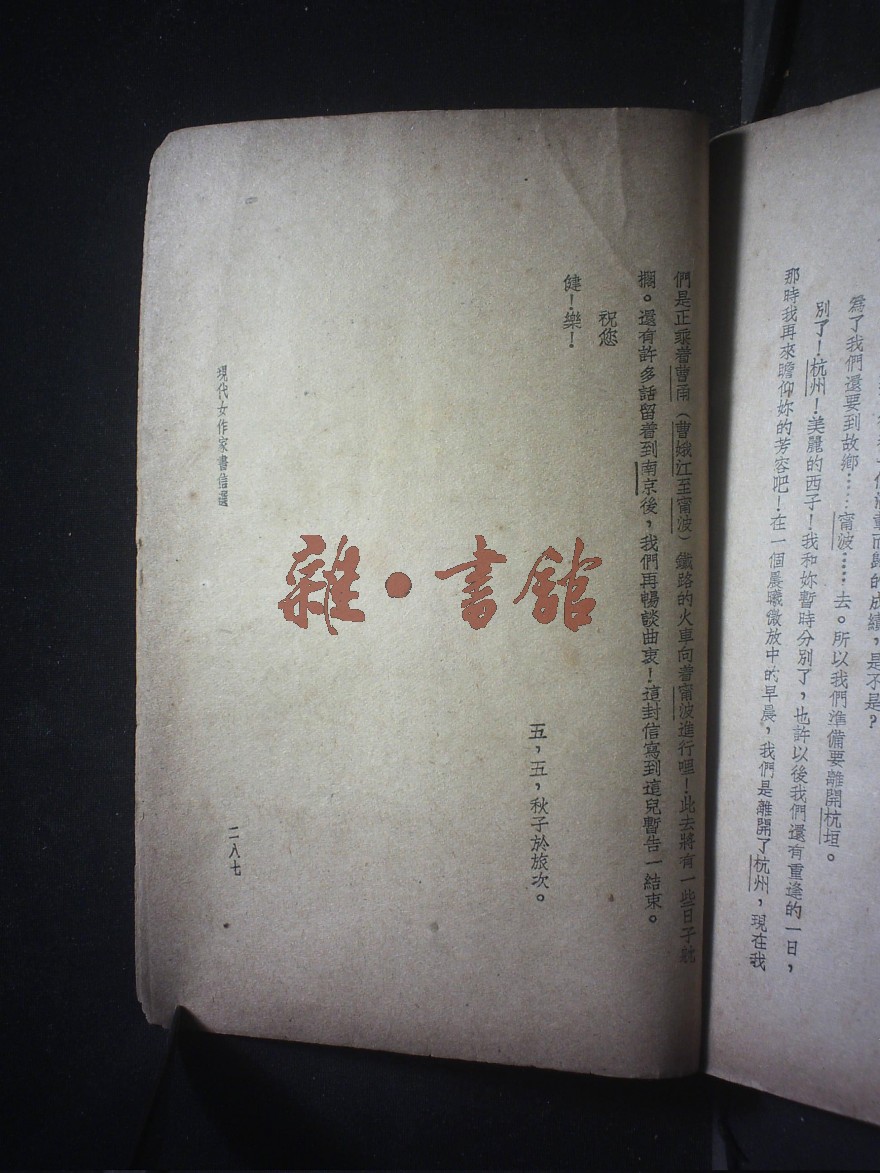 而歸的成績，是不是？
為了我們還要到故鄉……甯波……去。所以我們準備要離開杭垣。
別了！杭州！美麗的西子！我和妳暫時分別了，也許以後我們還有重逢的一日，
那時我再來瞻仰妳的芳容吧！在一個晨曦微放中的早晨，我們是離開了杭州，現在我
們是正乘着曹甬（曹娥江至甯波）鐵路的火車向着甯波進行哩！此去將有一些日子躭
擱。還有許多話留着到南京後，我們再暢談曲衷！這封信寫到這兒暫告一結束。
祝您
健！樂！
五，五，秋子於旅次。
現代女作家書信選
二八七
雜•書館